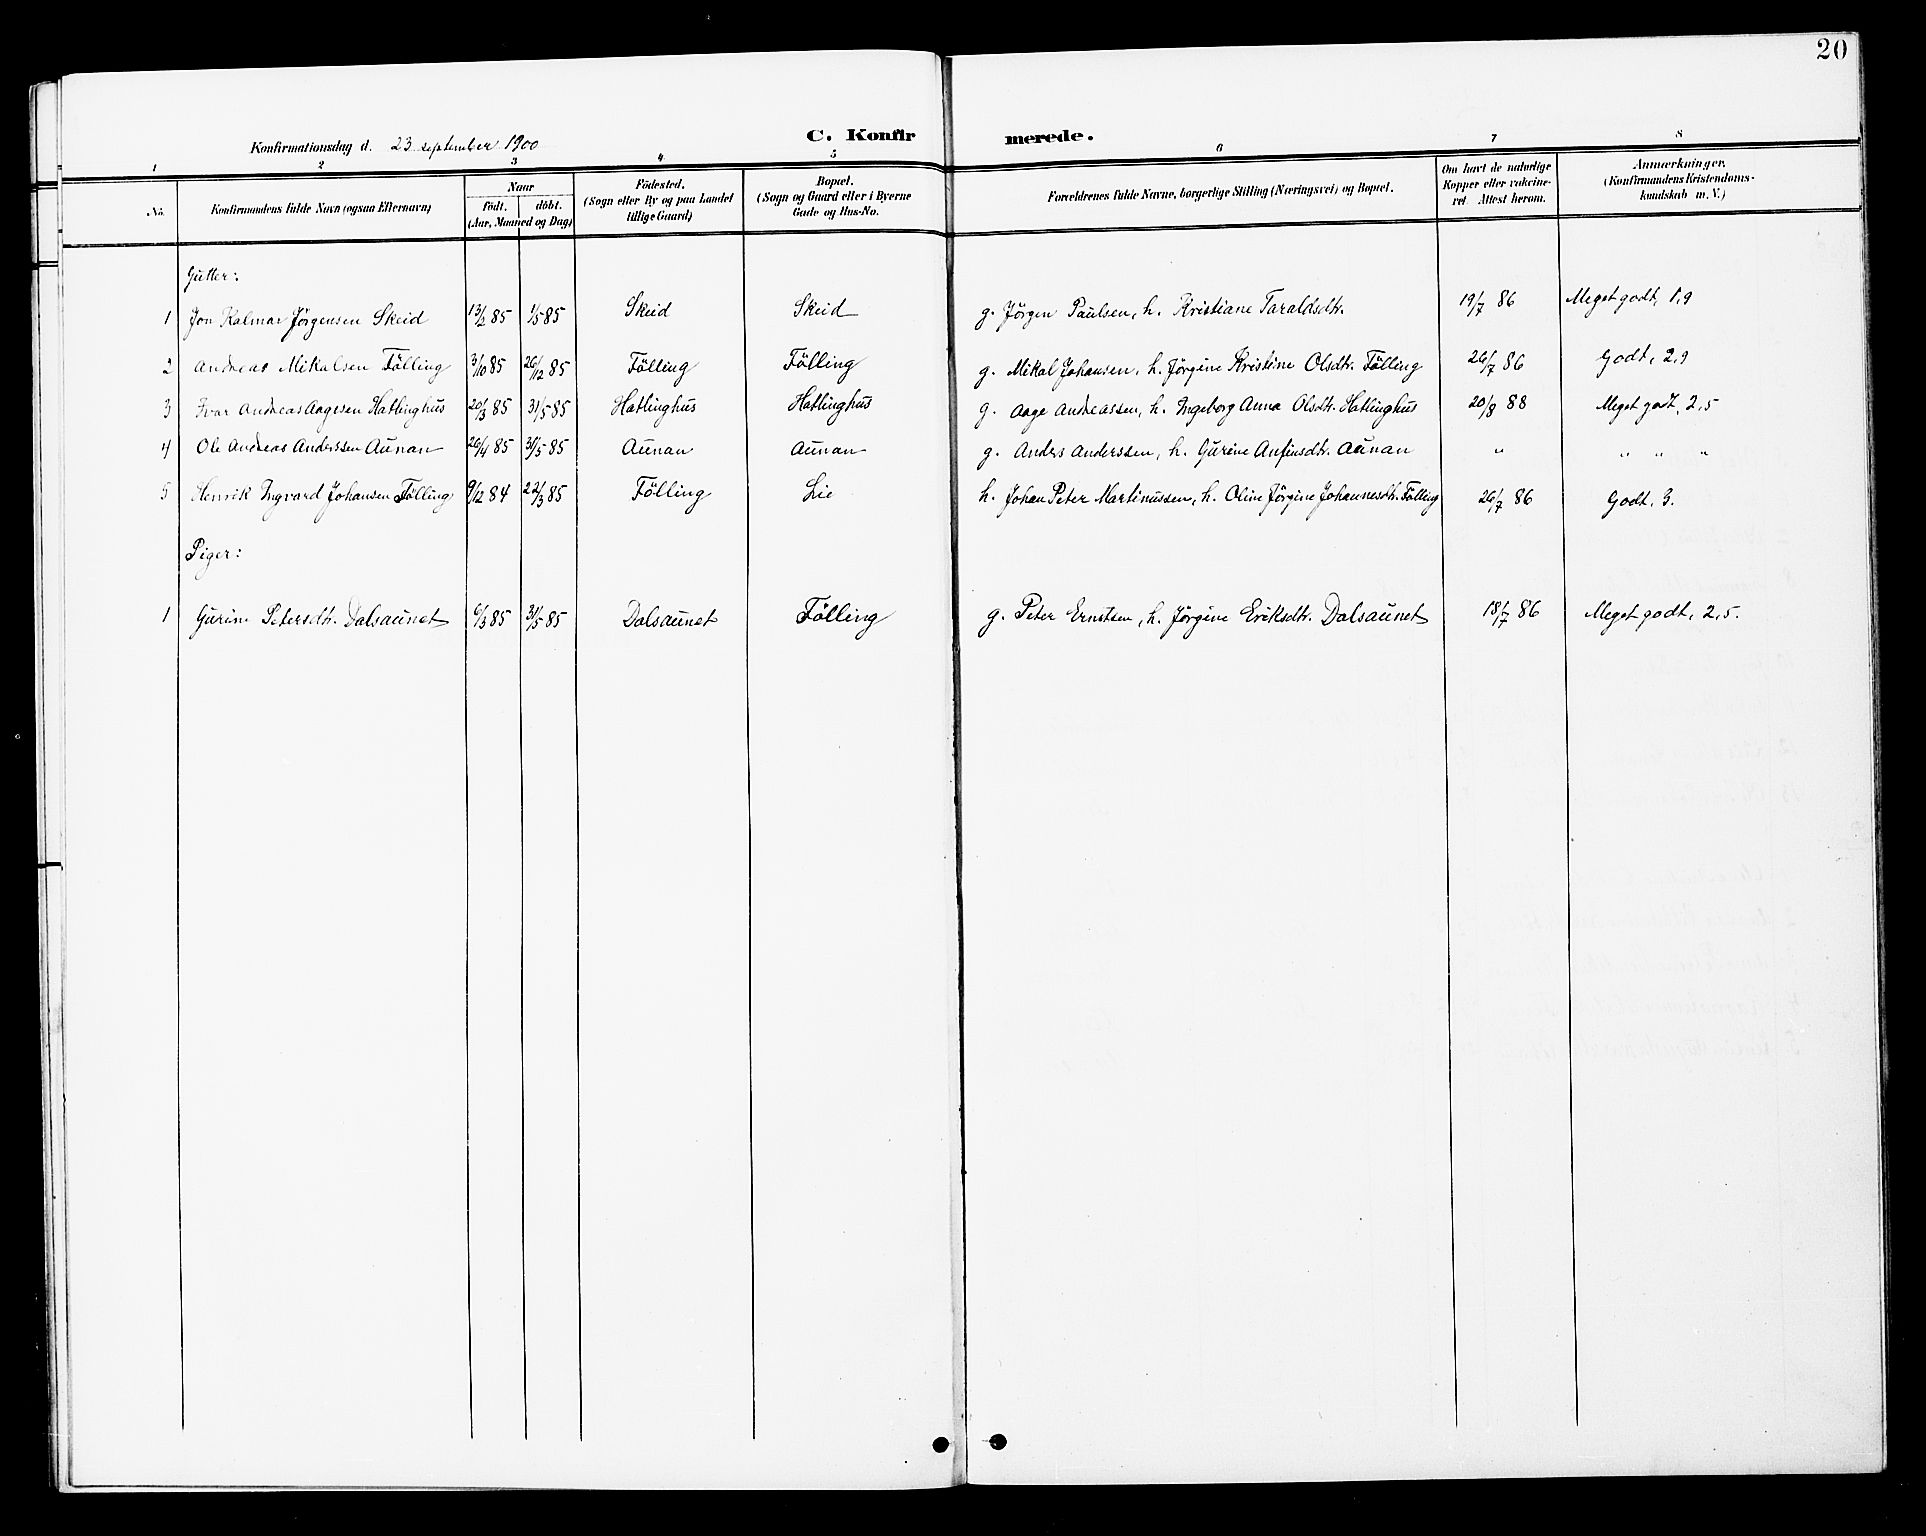 20
C. Konfirmerede.
Konfirmationsdag d. 23 september 1900
1 2 3 4 5 6 7 8
No. Konfirmandens fulde Navn (ogsaa Efternavn) Naar födt. döbt. (Aar, Maaned og Dag) Födested. (Sogn eller By og paa Landet tillige Gaard) Bopæl. (Sogn og Gaard eller i Byerne Gade og Hus-No. Forældrenes fulde Navne, borgerlige Stilling (Næringsvei) og Bopæl. Om havt de naturlige Kopper eller vakcineret. Attest herom. Anmærkninger. (Konfirmandens Kristendomskundskab m. V.)
Gutter:
1 Jon Kalmar Jørgensen Skeid 13/2 85 1/5 85 Skeid Skeid g. Jørgen Paulsen, h. Kristiane Taraldsdtr. 19/7 86 Meget godt, 1,9
2 Andreas Mikalsen Fölling 3/10 85 26/12 85 Fölling Fölling g. Mikal Johansen, h. Jørgine Kristine Olsdtr. Fölling 26/7 86 Godt, 2,9
3 Ivar Andreas Aagesen Hatlinghus 20/3 85 31/5 85 Hatlinghus Hatlinghus g. Aage Andreassen, h. Ingeborg Anna Olsdtr. Hatlinghus 20/8 88 Meget godt, 2,5
4 Ole Andreas Anderssen Aunan 26/4 85 31/5 85 Aunan Aunan g. Anders Anderssen, h. Gurine Anfinsdtr. Aunan " " " "
5 Henrik Ingvard Johansen Fölling 9/12 84 22/3 85 Fölling Lie h. Johan Peter Martinussen, h. Oline Jørgine Johannesdtr. Fölling 26/7 86 Godt, 3.
Piger:
1 Gurine Petersdtr. Dalsaunet 6/3 85 31/5 85 Dalsaunet Fölling g. Peter Ernstsen, h. Jørgine Eriksdtr. Dalsaunet 18/7 86 Meget godt, 2,5.